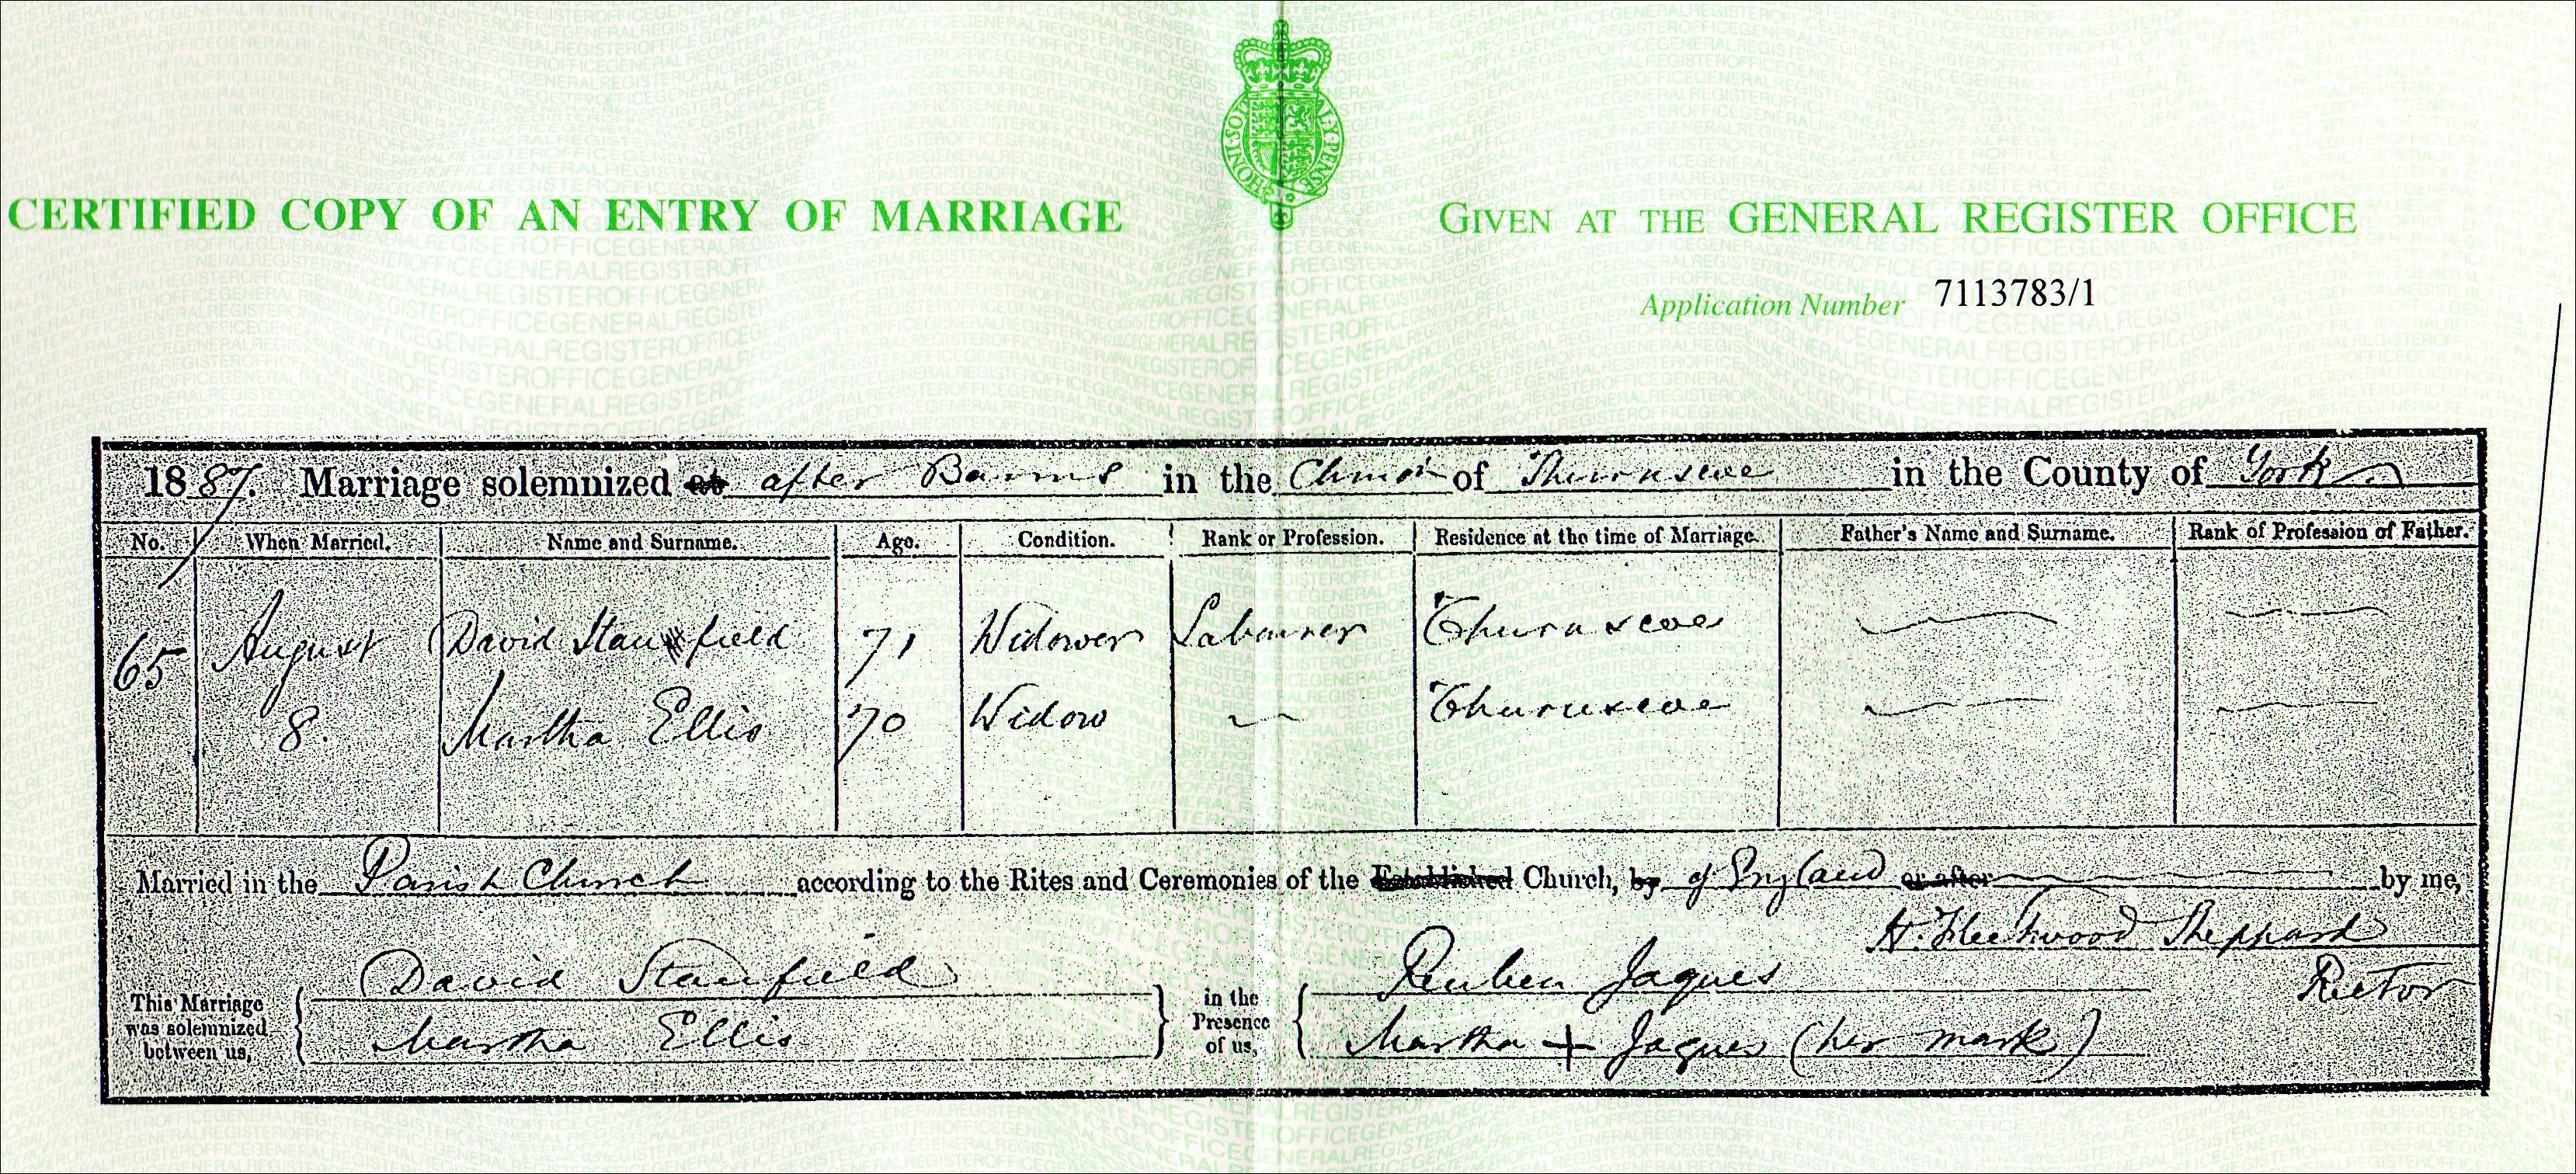 HONI·SOIT ALY·PENSE
CERTIFIED COPY OF AN ENTRY OF MARRIAGE
GIVEN AT THE GENERAL REGISTER OFFICE
Application Number 7113783/1
1887. Marriage solemnized at after Banns in the Church of Thurnscoe in the County of York
No. When Married. Name and Surname. Age. Condition. Rank or Profession. Residence at the time of Marriage. Father's Name and Surname. Rank of Profession of Father.
65 August David Stanfield 71 Widower Labourer Thurnscoe
8. Martha Ellis 70 Widow Thurnscoe
Married in the Parish Church according to the Rites and Ceremonies of the Established Church, by of England or after by me,
H. Fleetwood Sheppard
Rector
This Marriage was solemnized between us,
David Stanfield
Martha Ellis
in the Presence of us,
Reuben Jaques
Martha + Jaques (her mark)